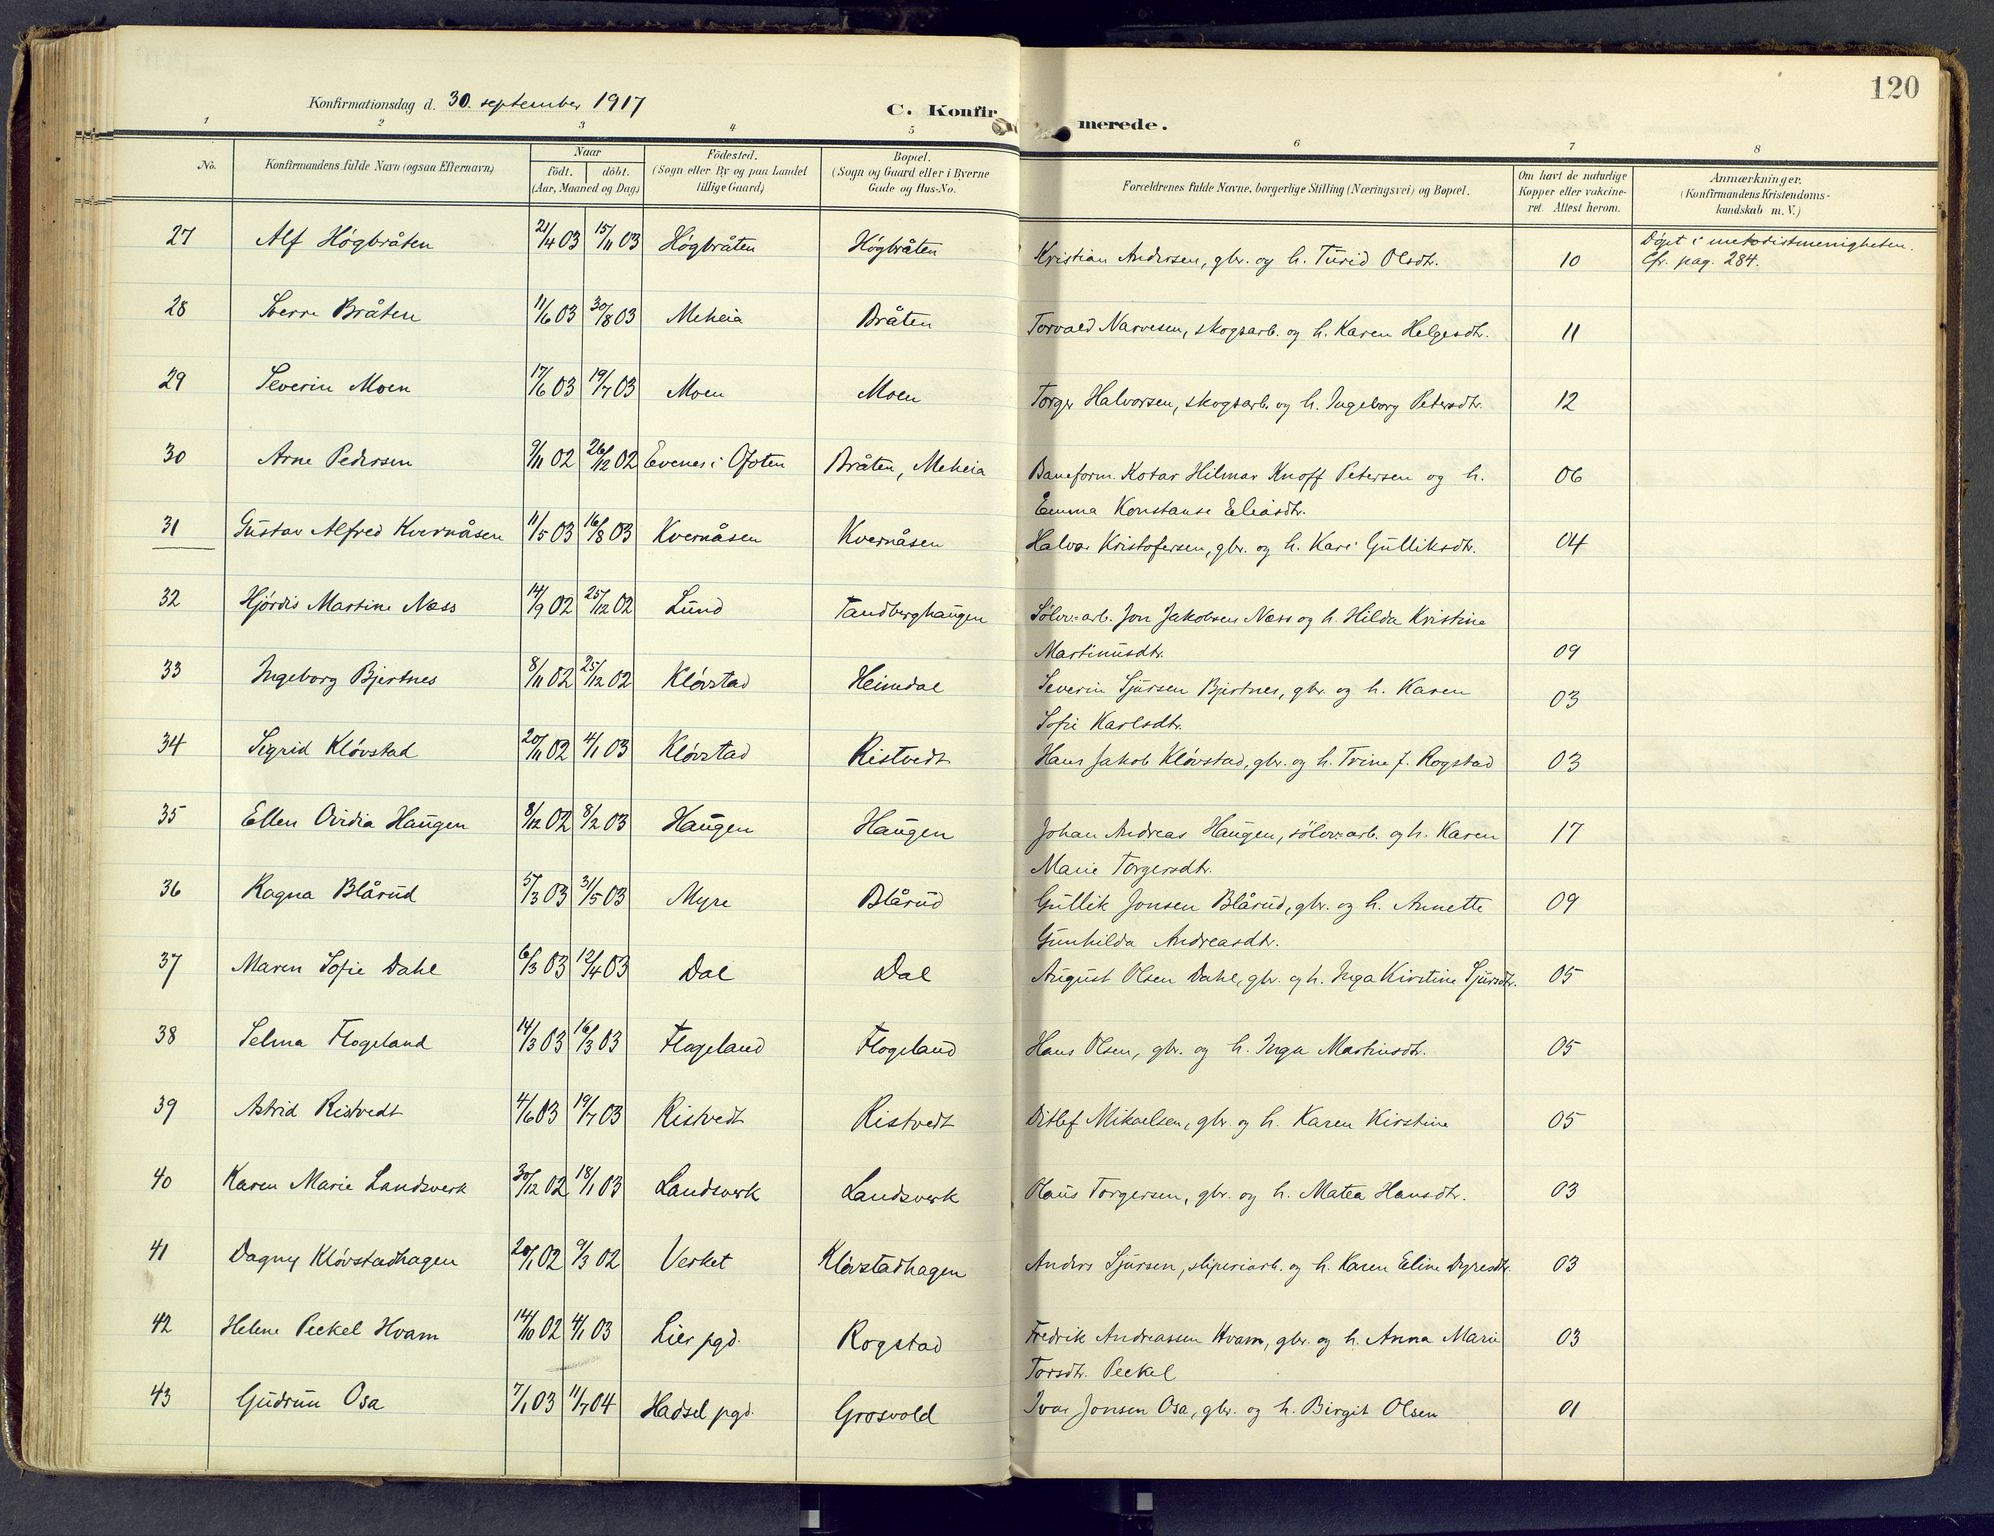 120
Konfirmationsdag d. 30. september 1917
C. Konfirmerede.
1 2 3 4 5 6 7 8
No. Konfirmandens fulde Navn (ogsaa Efternavn) Naar födt. döbt. (Aar, Maaned og Dag) Födested. (Sogn eller By og paa Landet tillige Gaard) Bopæl. (Sogn og Gaard eller i Byerne Gade og Hus-No. Forældrenes fulde Navne, borgerlige Stilling (Næringsvei) og Bopæl. Om havt de naturlige Kopper eller vakcineret. Attest herom. Anmærkninger. (Konfirmandens Kristendomskundskab m. V.)
27 Alf Högbråten 21/4 03 15/11 03 Högbråten Högbråten Kristian Andersen, gbr. og h. Turid Olsdtr. 10 Döpt i metodistmenigheten. Cfr. pag. 284.
28 Sverre Bråten 11/6 03 30/8 03 Meheia Bråten Torvald Narvesen, skogsarb. og h. Karen Helgesdtr. 11
29 Severin Moen 17/6 03 19/7 03 Moen Moen Torger Halvorsen, skogsarb. og h. Ingeborg Petersdtr. 12
30 Arne Pedersen 9/11 02 26/12 02 Evenes i Ofoten Bråten, Meheia Baneform. Kotar Hilmar Knoff Petersen og h.
Emma Konstanse Eliasdtr. 06
31 Gustav Alfred Kvernåsen 11/5 03 16/8 03 Kvernåsen Kvernåsen Halvor Kristofersen, gbr. og h. Kari Gulliksdtr. 04
32 Hjördis Martine Næss 14/9 02 25/12 02 Lund Tandberghaugen Sölvv.arb. Jon Jakobsen Næss og h. Hilda Kristine
Martinusdtr. 09
33 Ingeborg Bjertnes 8/11 02 25/12 02 Klövstad Heimdal Severin Sjursen Bjertnes, gbr. og h. Karen
Sofie Karlsdtr. 03
34 Sigrid Klövstad 20/11 02 4/1 03 Klövstad Ristvedt Hans Jakob Klövstad, gbr. og h. Trine f. Rogstad 03
35 Ellen Ovidia Haugen 8/12 02 8/2 03 Haugen Haugen Johan Andreas Haugen, sölvv.arb. og h. Karen
Marie Torgersdtr. 17
36 Ragna Blårud 5/3 03 31/5 03 Myre Blårud Gullik Jonsen Blårud, gbr. og h. Annette
Gunhilda Andreasdtr. 09
37 Maren Sofie Dahl 6/3 03 12/4 03 Dal Dal August Olsen Dahl, gbr. og h. Inga Kirstine Sjursdtr. 05
38 Selma Flogeland 14/3 03 16/3 03 Flogeland Flogeland Hans Olsen, gbr. og h. Inga Martinsdtr. 05
39 Astrid Ristvedt 4/6 03 19/7 03 Ristvedt Ristvedt Ditlef Mikaelsen, gbr. og h. Karen Kirstine 05
40 Karen Marie Landsverk 30/12 02 18/1 03 Landsverk Landsverk Olaus Torgersen, gbr. og h. Matea Hansdtr. 03
41 Dagny Klövstadhagen 20/1 02 9/3 02 Verket Klövstadhagen Anders Sjursen, sliperiarb. og h. Karen Eline Dyresdtr. 03
42 Helene Peckel Hvam 14/10 02 4/1 03 Lier pgd. Rogstad Fredrik Andreassen Hvam, gbr. og h. Anna Marie
Torsdtr. Peckel 03
43 Gudrun Osa 7/1 03 11/7 04 Hadsel pgd. Grosvold Ivar Jonsen Osa, gbr. og h. Birgit Olsen 01